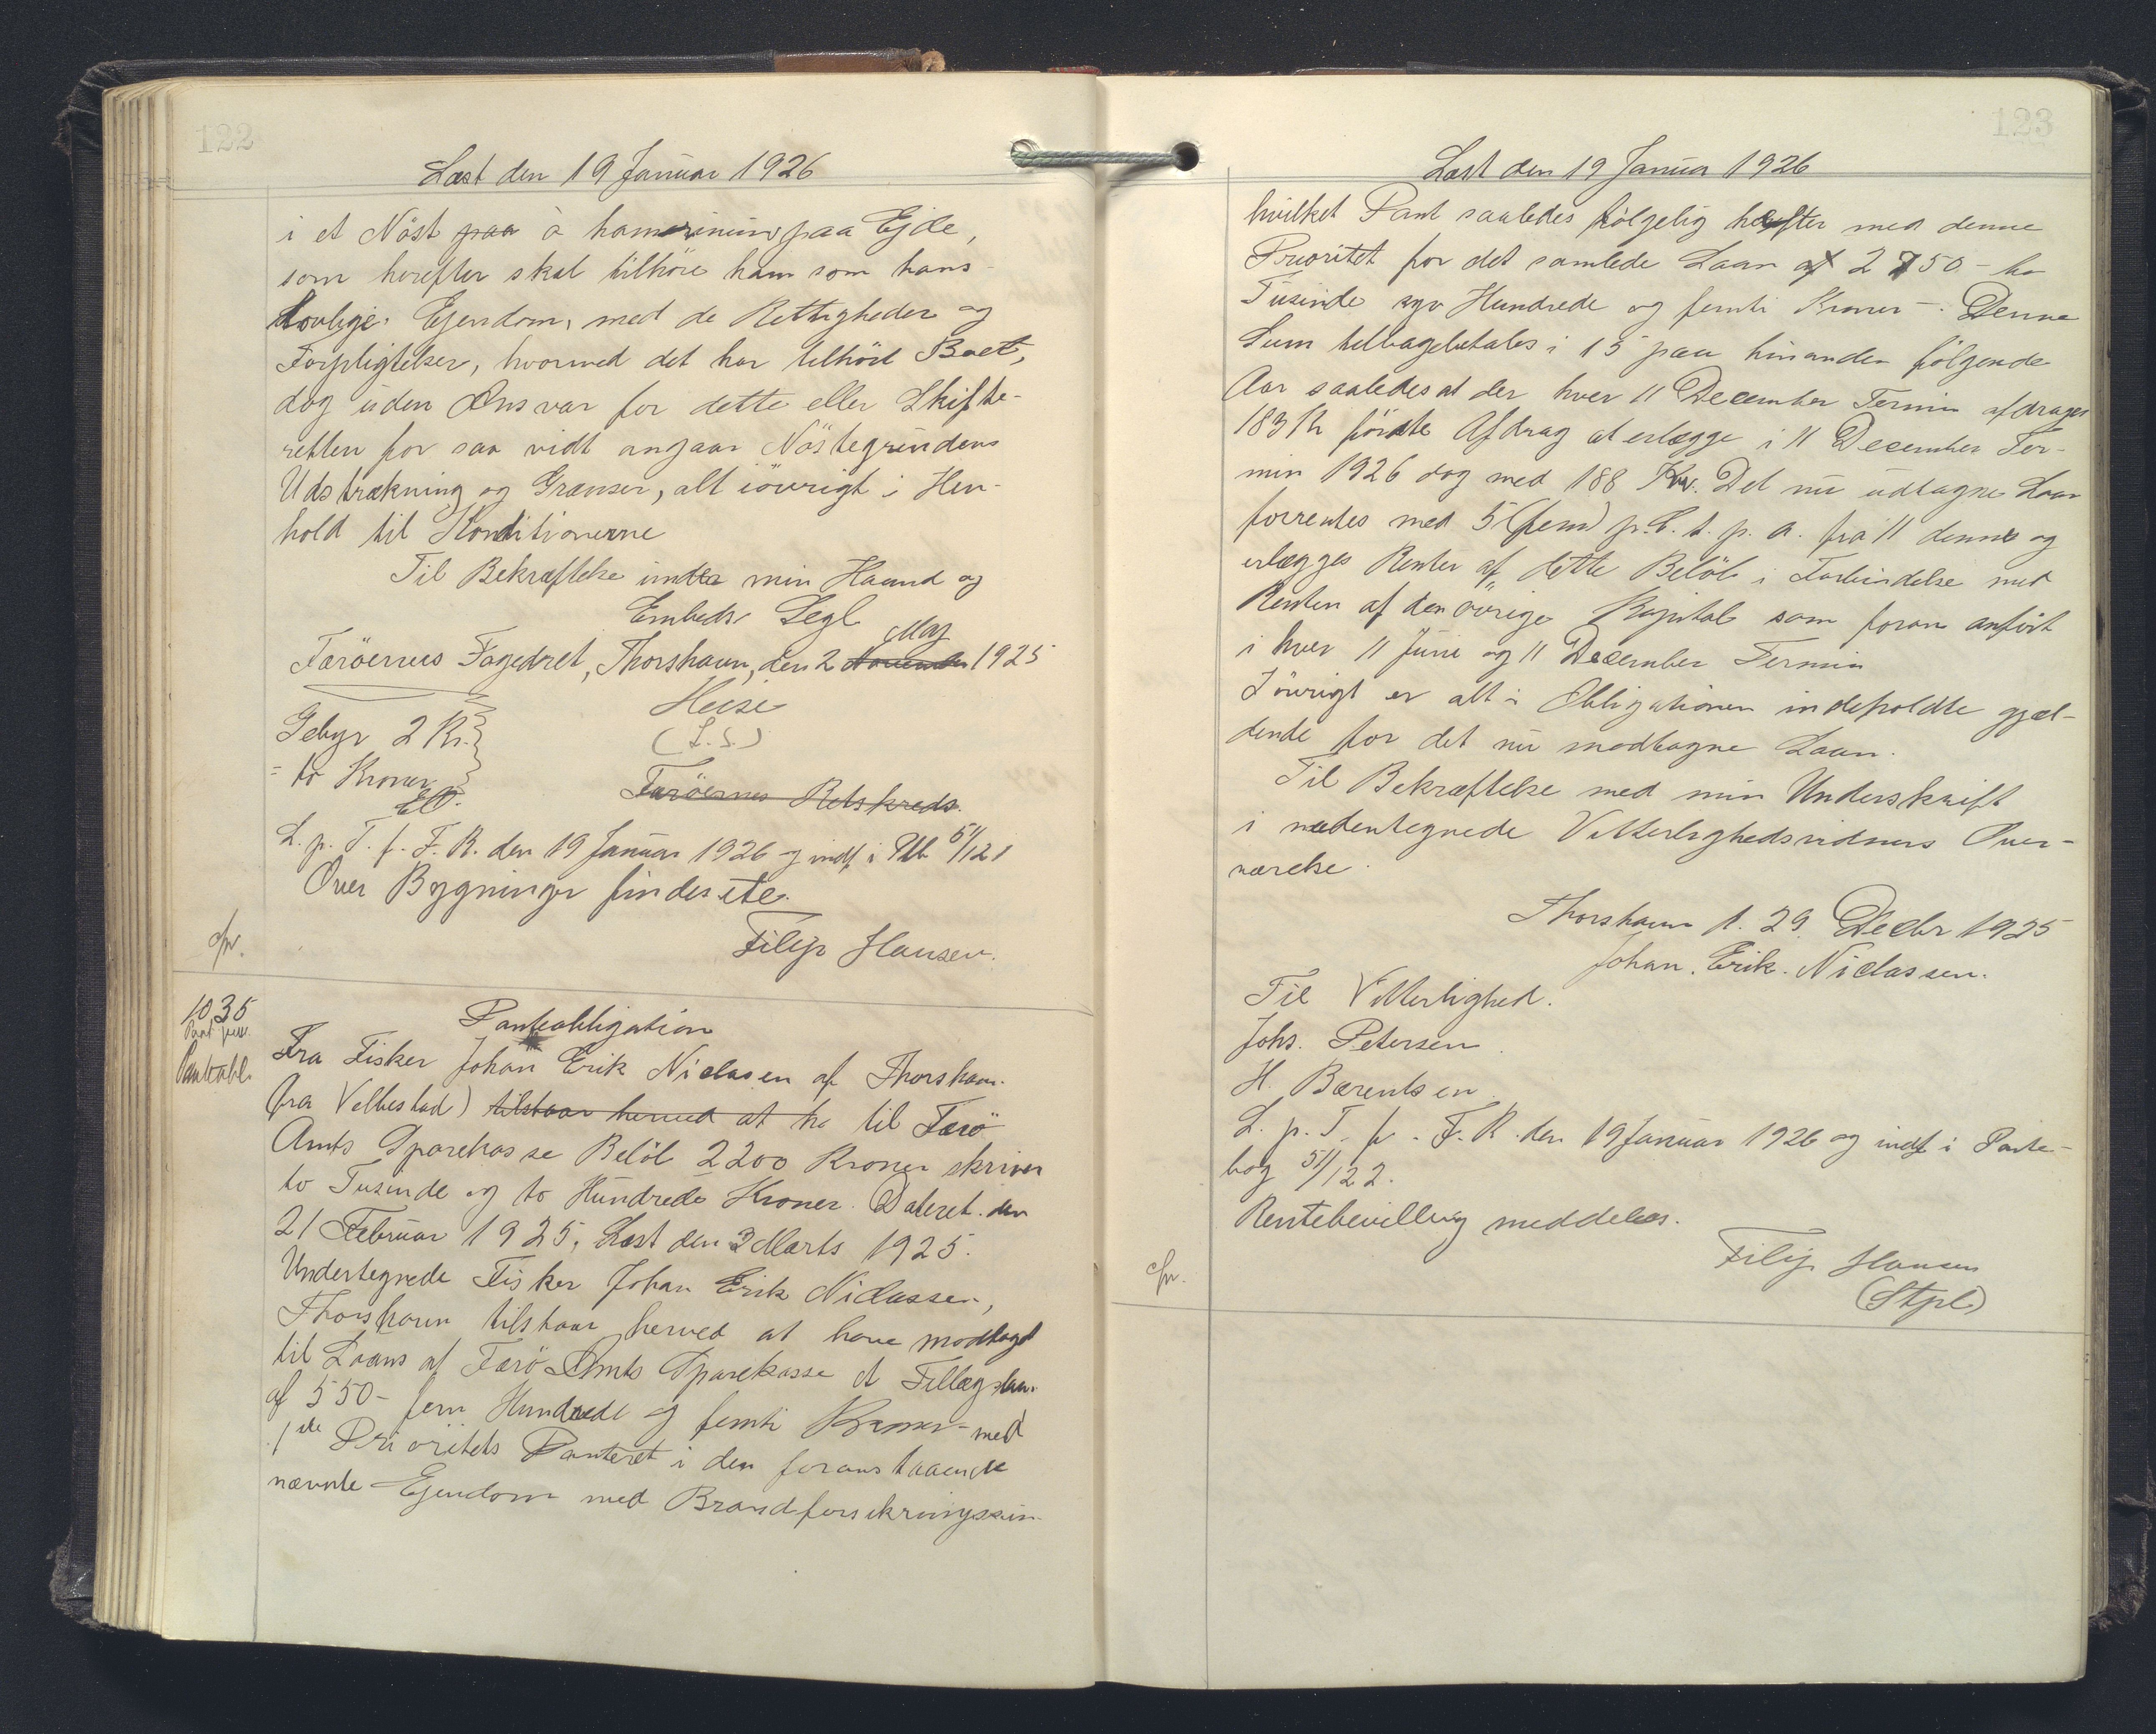 122
Læst den 19 Januar 1926
i et Nöst paa à hamrinum paa Ejde,
som herefter skal tilhöre ham som hans
lovlige Ejendom, med de Rettigheder og
Forpligtelser, hvormed det har tilhört Boet,
dog uden Ansvar for dette eller Skifte-
retten for saa vidt angaar Nöstegrundens
Udstrækning og Grænser, alt iövrigt i Hen-
hold til Konditionerne
Til Bekræftelse under min Haand og
Embeds Segl
Færöernes Fogedret, Thorshavn, den 2 November Maj 1925
Heise
(L.S.)
Gebyr 2 Kr.
= to Kroner
Færöernes Retskreds.
L. p. T. f. F. R. den 19 Januar 1926 og indf i Pb 51/121
Over Bygninger findes ete.
Filip Hansen.
1035
Pantobl.
Panteobligation
Fra Fisker Johan Erik Niclasen af Thorshavn.
(fra Velbestad) tilstaar herved at ha til Færö
Amts Sparekasse Belöb 2200 Kroner skriver
to Tusinde og to Hundrede Kroner. Dateret den
21 Februar 1925. Læst den 3 Marts 1925.
Undertegnede Fisker Johan Erik Niclassen,
Thorshavn tilstaar herved at have modtaget
til Laans af Færö Amts Sparekasse et Tillægslaan
af 550 - fem Hundrede og femti Kroner - med
1ste Prioritets Panteret i den foranstaaende
nævnte Ejendom med Brandforsikringssum
123
Læst den 19 Januar 1926
hvilket Pant saaledes fölgelig hefter med denne
Prioritet for det samlede Laan af 2750 - to
Tusinde syv Hundrede og femti Kroner -. Denne
Sum tilbagebetales i 15 paa hinanden fölgende
Aar saaledes at der hver 11 December Termin afdrages
183 Kr förste Afdrag at erlægge i 11 December Ter-
min 1926 dog med 188 Kr. Det nu udtagne Laan
forrentes med 5 (fem) p. C. t. p. a. fra 11 dennes og
erlægges Renter af dette Belöb i Forbindelse med
Renten af den övrige Kapital som foran anfört
i hver 11 Juni og 11 December Termin
Iövrigt er alt i Obligationen indeholdte gjæl-
dende for det nu modtagne Laan.
Til Bekræftelse med min Underskrift
i nedentegnede Vitterlighedsvidners Over-
værelse.
Thorshavn d. 29 Decbr 1925
Johan Erik Niclassen.
Til Vitterlighed.
Johs. Petersen.
H. Bærentsen.
L. p. T. f. F. R. den 19 Januar 1926 og indf i Pante-
bog 51/122.
Rentebevilling meddeles.
Filip Hansen
(Stpl)